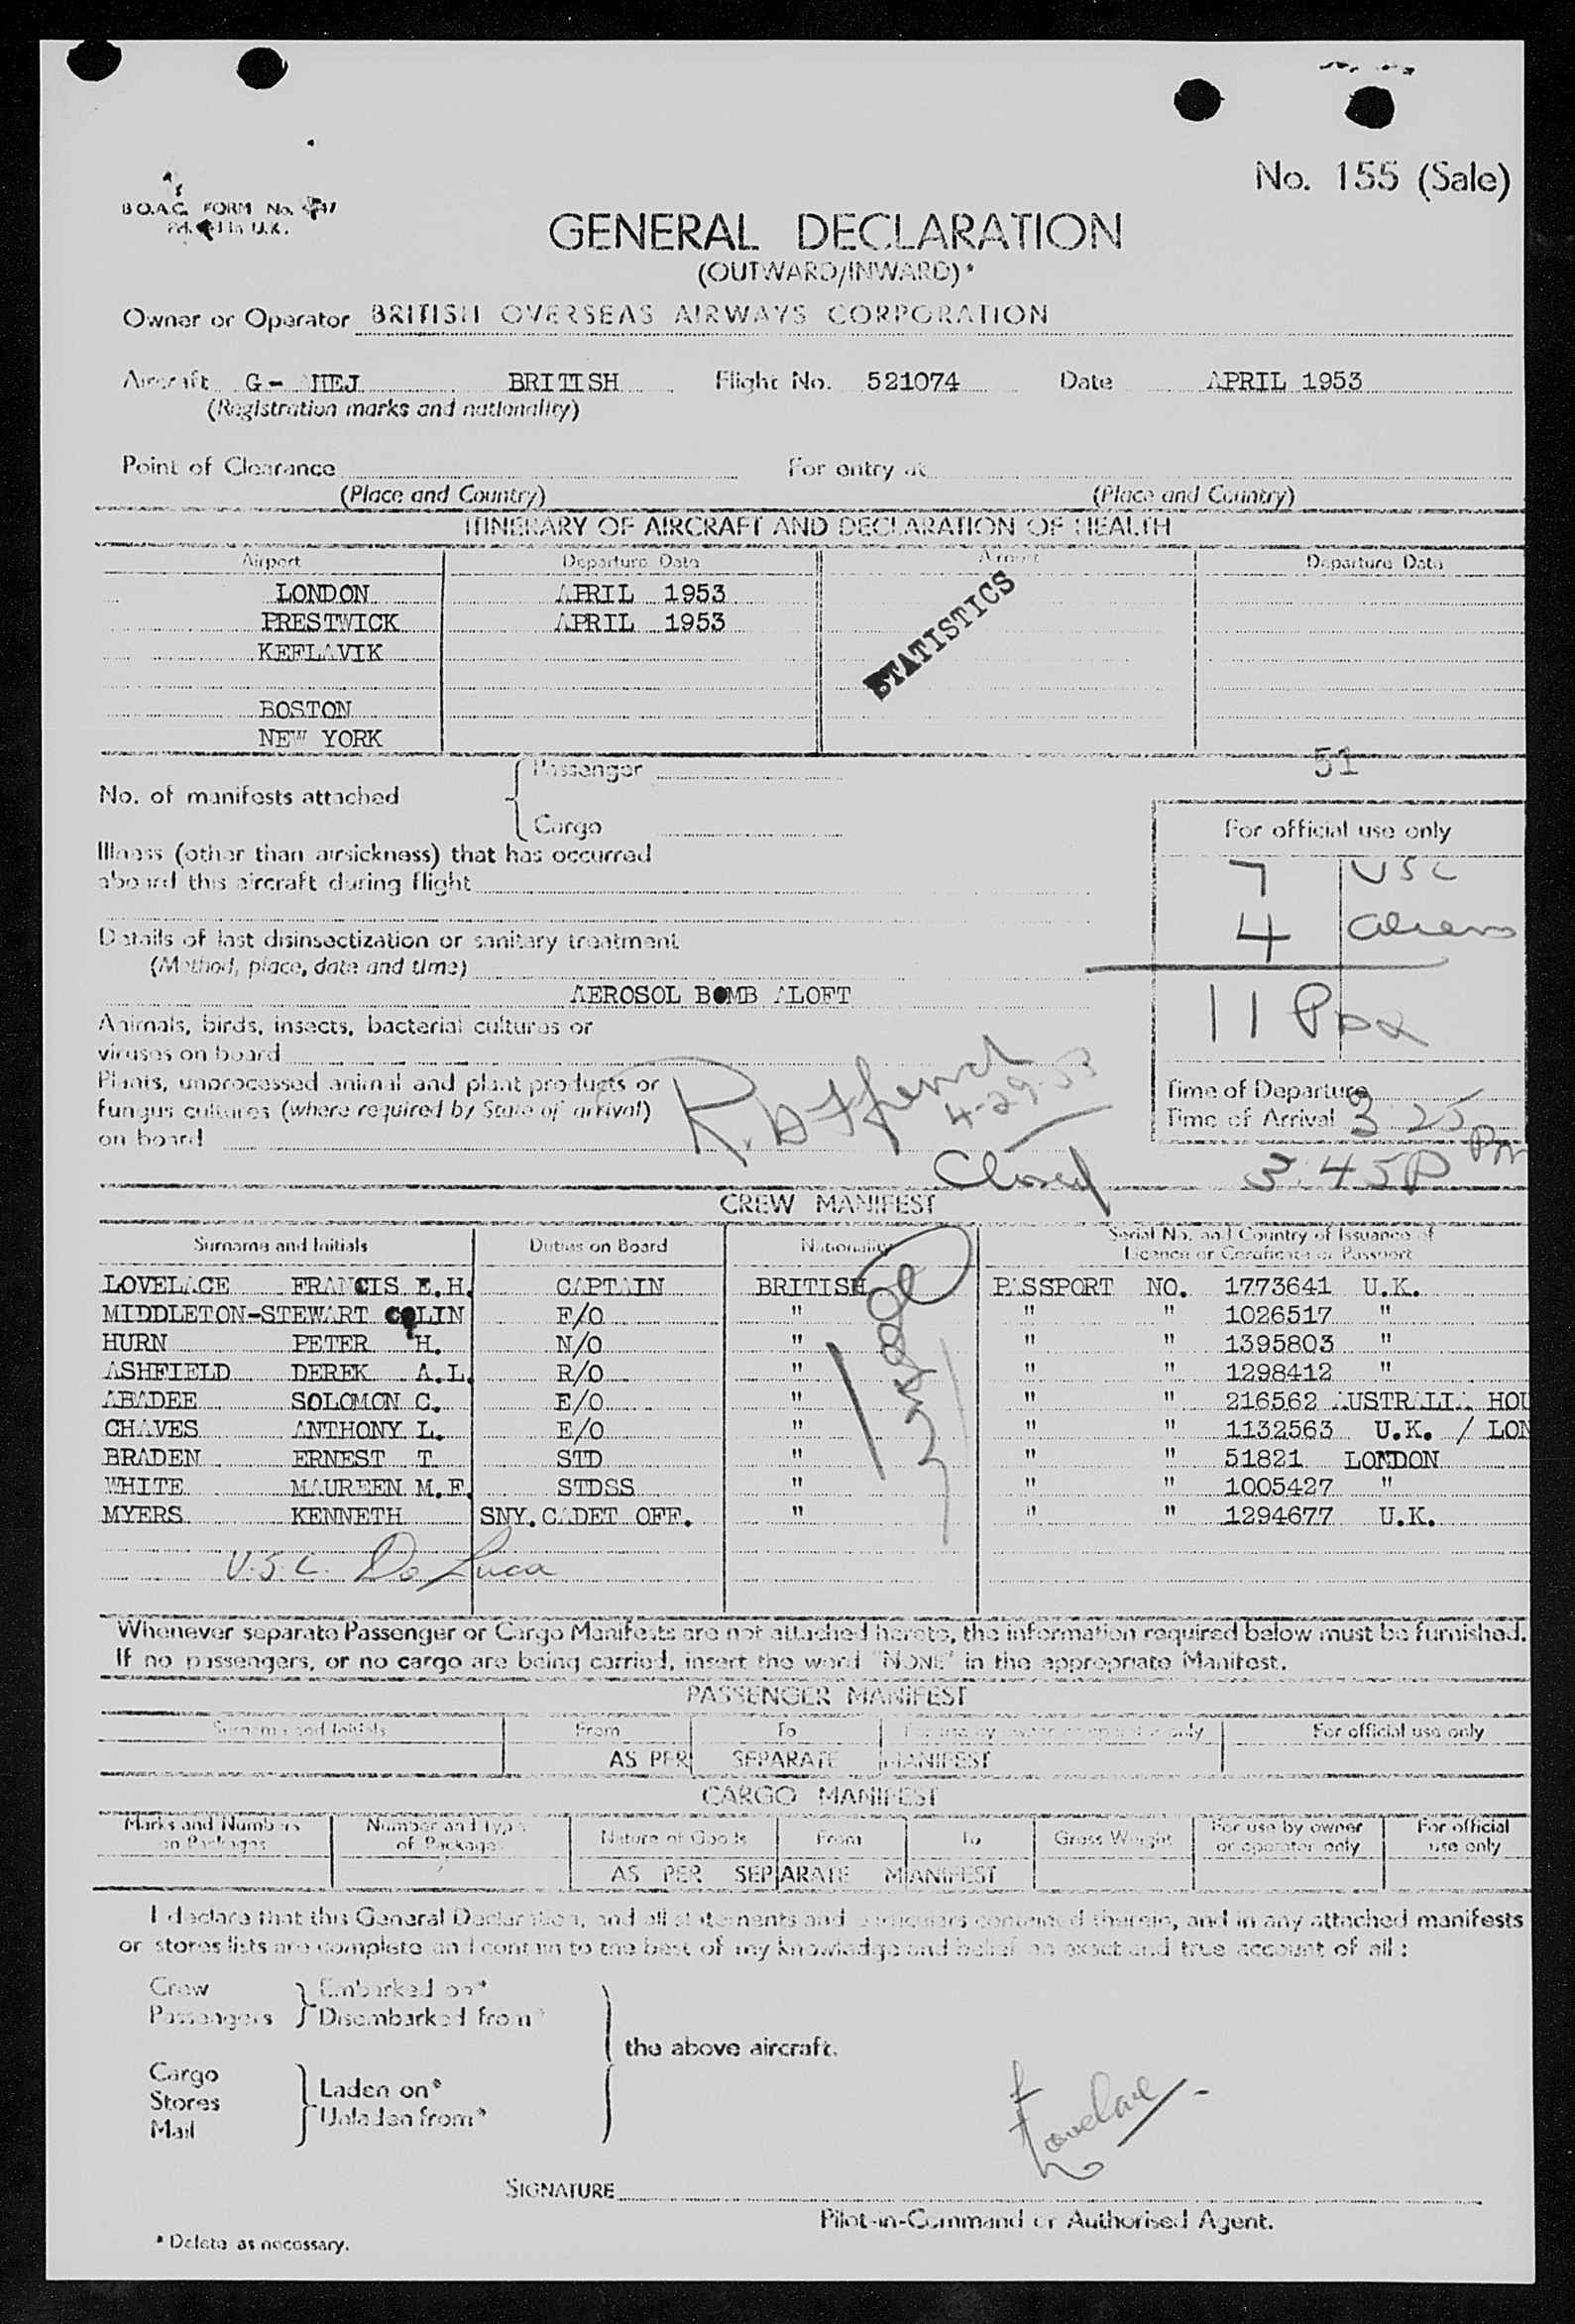 No. 155 (Sale)
B.O.A.C. FORM No.
U.K.
GENERAL DECLARATION
(OUTWARD/INWARD)*
Owner or Operator BRITISH OVERSEAS AIRWAYS CORPORATION
Aircraft G- HEJ BRITISH Flight No. 521074 Date APRIL 1953
(Registration marks and nationality)
Point of Clearance For entry at
(Place and Country) (Place and Country)
ITINERARY OF AIRCRAFT AND DECLARATION OF HEALTH
Airport Departure Date Airport Departure Date
LONDON APRIL 1953
PRESTWICK APRIL 1953
KEFLAVIK
STATISTICS
BOSTON
NEW YORK
51
Passenger
No. of manifests attached
Cargo
For official use only
Illness (other than airsickness) that has occurred
aboard this aircraft during flight
7 USC
4 aliens
Details of last disinsectization or sanitary treatment
(Method, place, date and time)
AEROSOL BOMB ALOFT
11 Pax
Animals, birds, insects, bacterial cultures or
viruses on board
Plants, unprocessed animal and plant products or
fungus cultures (where required by State of arrival)
on board
4-29-53
Closed
Time of Departure
Time of Arrival 3 25 PM
3:45P
CREW MANIFEST
Surname and Initials Duties on Board Nationality Serial No. and Country of Issuance of
Licence or Certificate or Passport
LOVELACE FRANCIS E.H. CAPTAIN BRITISH PASSPORT NO. 1773641 U.K.
MIDDLETON-STEWART COLIN F/O " " " 1026517 "
HURN PETER H. N/O " " " 1395803 "
ASHFIELD DEREK A.L. R/O " " " 1298412 "
ABADEE SOLOMON C. E/O " " " 216562 AUSTRALIA HOU
CHAVES ANTHONY L. E/O " " " 1132563 U.K. / LON
BRADEN ERNEST T. STD " " " 51821 LONDON
WHITE MAUREEN M.F. STDSS " " " 1005427 "
MYERS KENNETH SNY. CADET OFF. " " " 1294677 U.K.
U.S.C. De Luca
Whenever separate Passenger or Cargo Manifests are not attached hereto, the information required below must be furnished.
If no passengers, or no cargo are being carried, insert the word "NONE" in the appropriate Manifest.
PASSENGER MANIFEST
Surname and Initials From To For use by owner or operator only For official use only
AS PER SEPARATE MANIFEST
CARGO MANIFEST
Marks and Numbers on Packages Number and Type of Package Nature of Goods From To Gross Weight For use by owner or operator only For official use only
AS PER SEPARATE MANIFEST
I declare that this General Declaration, and all statements and particulars contained therein, and in any attached manifests
or stores lists are complete and contain to the best of my knowledge and belief an exact and true account of all :
Crew Embarked on*
Passengers Disembarked from*
the above aircraft.
Cargo
Stores Laden on*
Mail Unladen from*
Lovelace
SIGNATURE
Pilot-in-Command or Authorised Agent.
* Delete as necessary.